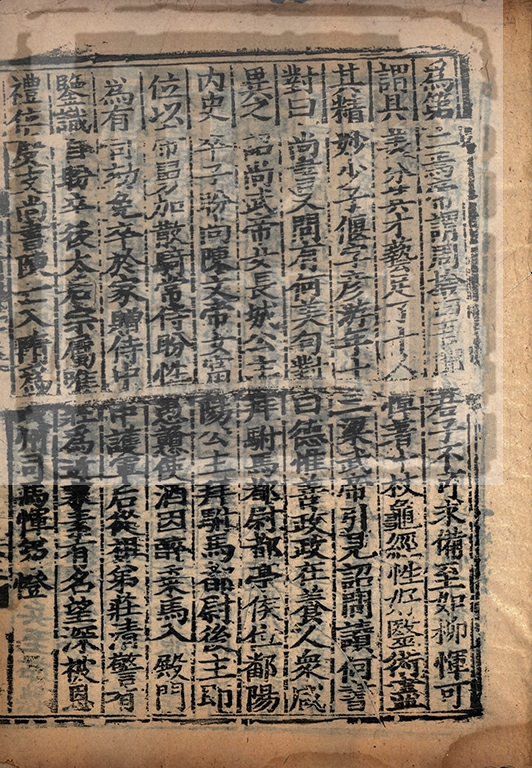 為第二焉帝謂周捨曰吾聞君子不可求備至如柳惲可
謂具美分其才藝足了十人惲著十杖龜經性好醫術盡
其精妙少子偃字彥游年十二梁武帝引見詔問讀何書
對曰尚書又問有何美句對曰德惟善政政在養人衆咸
異之詔尚武帝女長城公主拜駙馬都尉都亭侯位鄱陽
內史卒子盼尚陳文帝女富陽公主拜駙馬都尉後主即
位以帝舅加散騎常侍盼性愚戇使酒因醉乘馬入殿門
為有司劾免卒於家贈侍中中護軍后從祖弟莊清警有
鑒識自盼卒後太后宗屬唯莊為近兼素有名望深被恩
禮位度支尚書陳亡入隋為州司馬惲弟憕